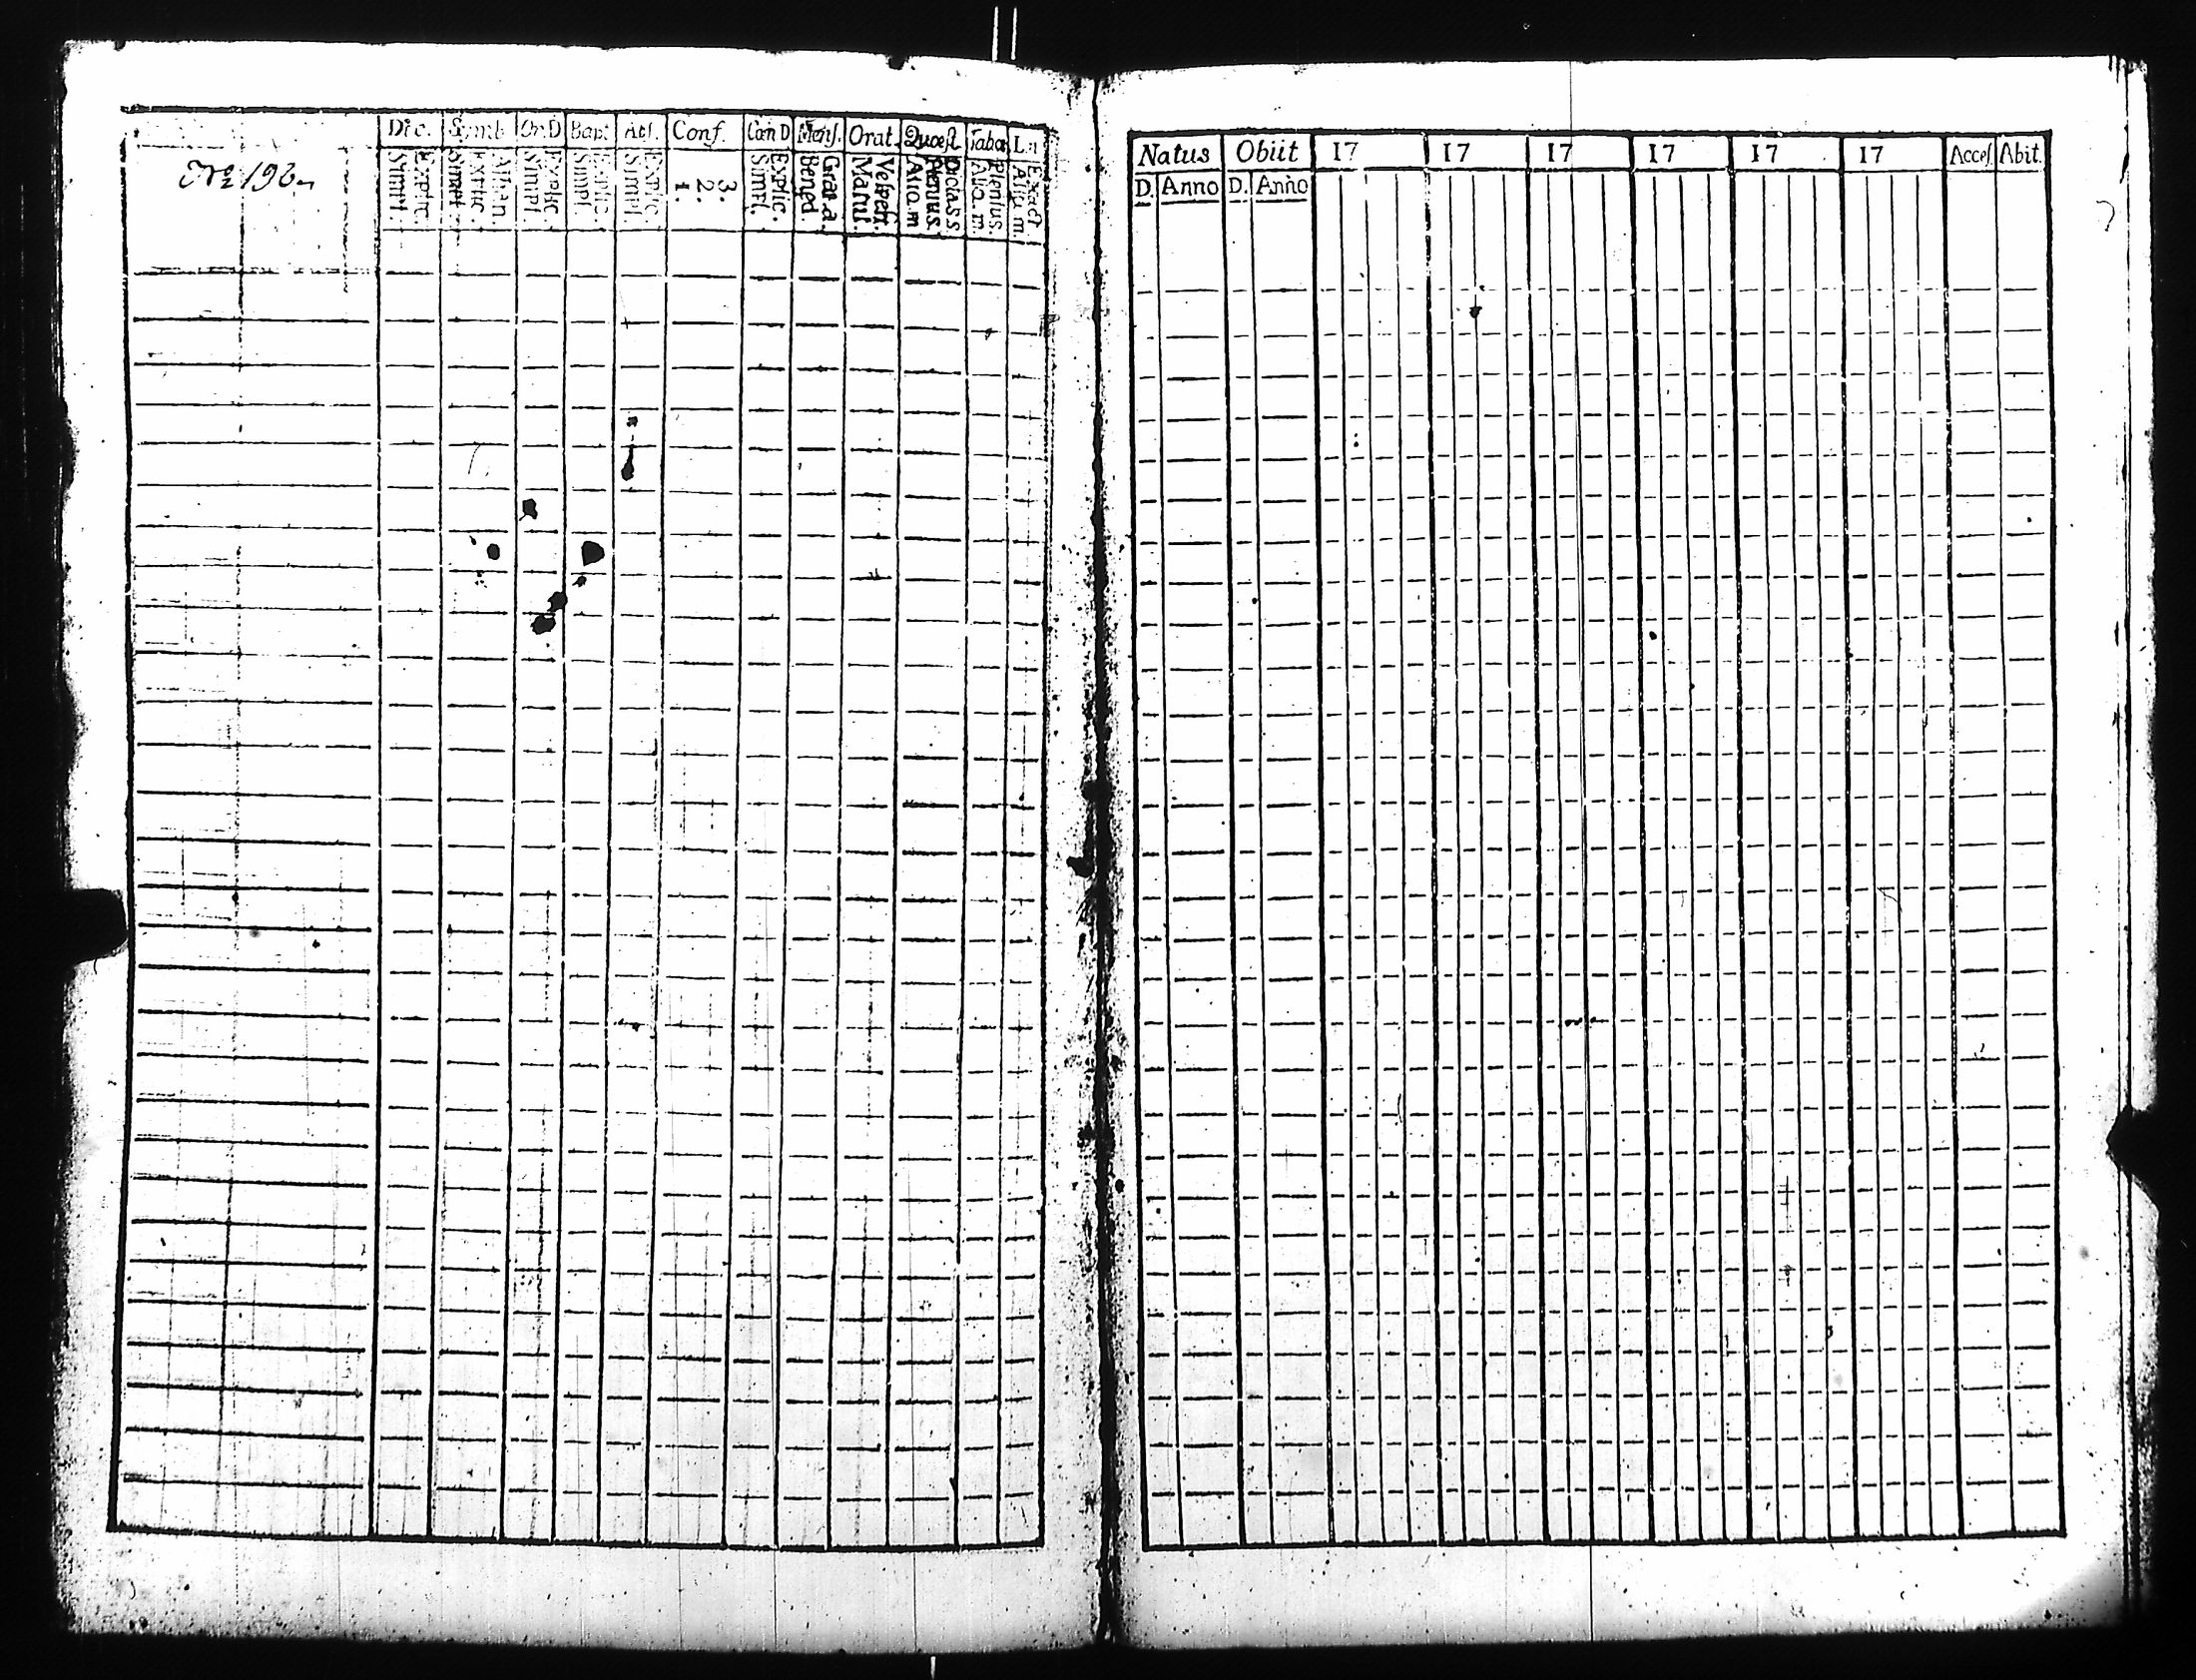 Dec. Symb. Or.D Bapt. Abs. Conf. Cœn D Mens. Orat. Quœst Taba
Explic. Simpl.
Athan. Explic. Simpl.
Explic. Simpl.
Explic. Simpl.
Explic. Simpl.
3. 2. 1.
Explic. Simpl.
Grat.a. Bened.
Vespert. Matut.
Dictass Plenius. Aliq.m
Plenius. Aliq.m.
Exact Aliq.m.
Natus Obiit 17 17 17 17 17 17 Acces. Abit.
D. Anno D. Anno